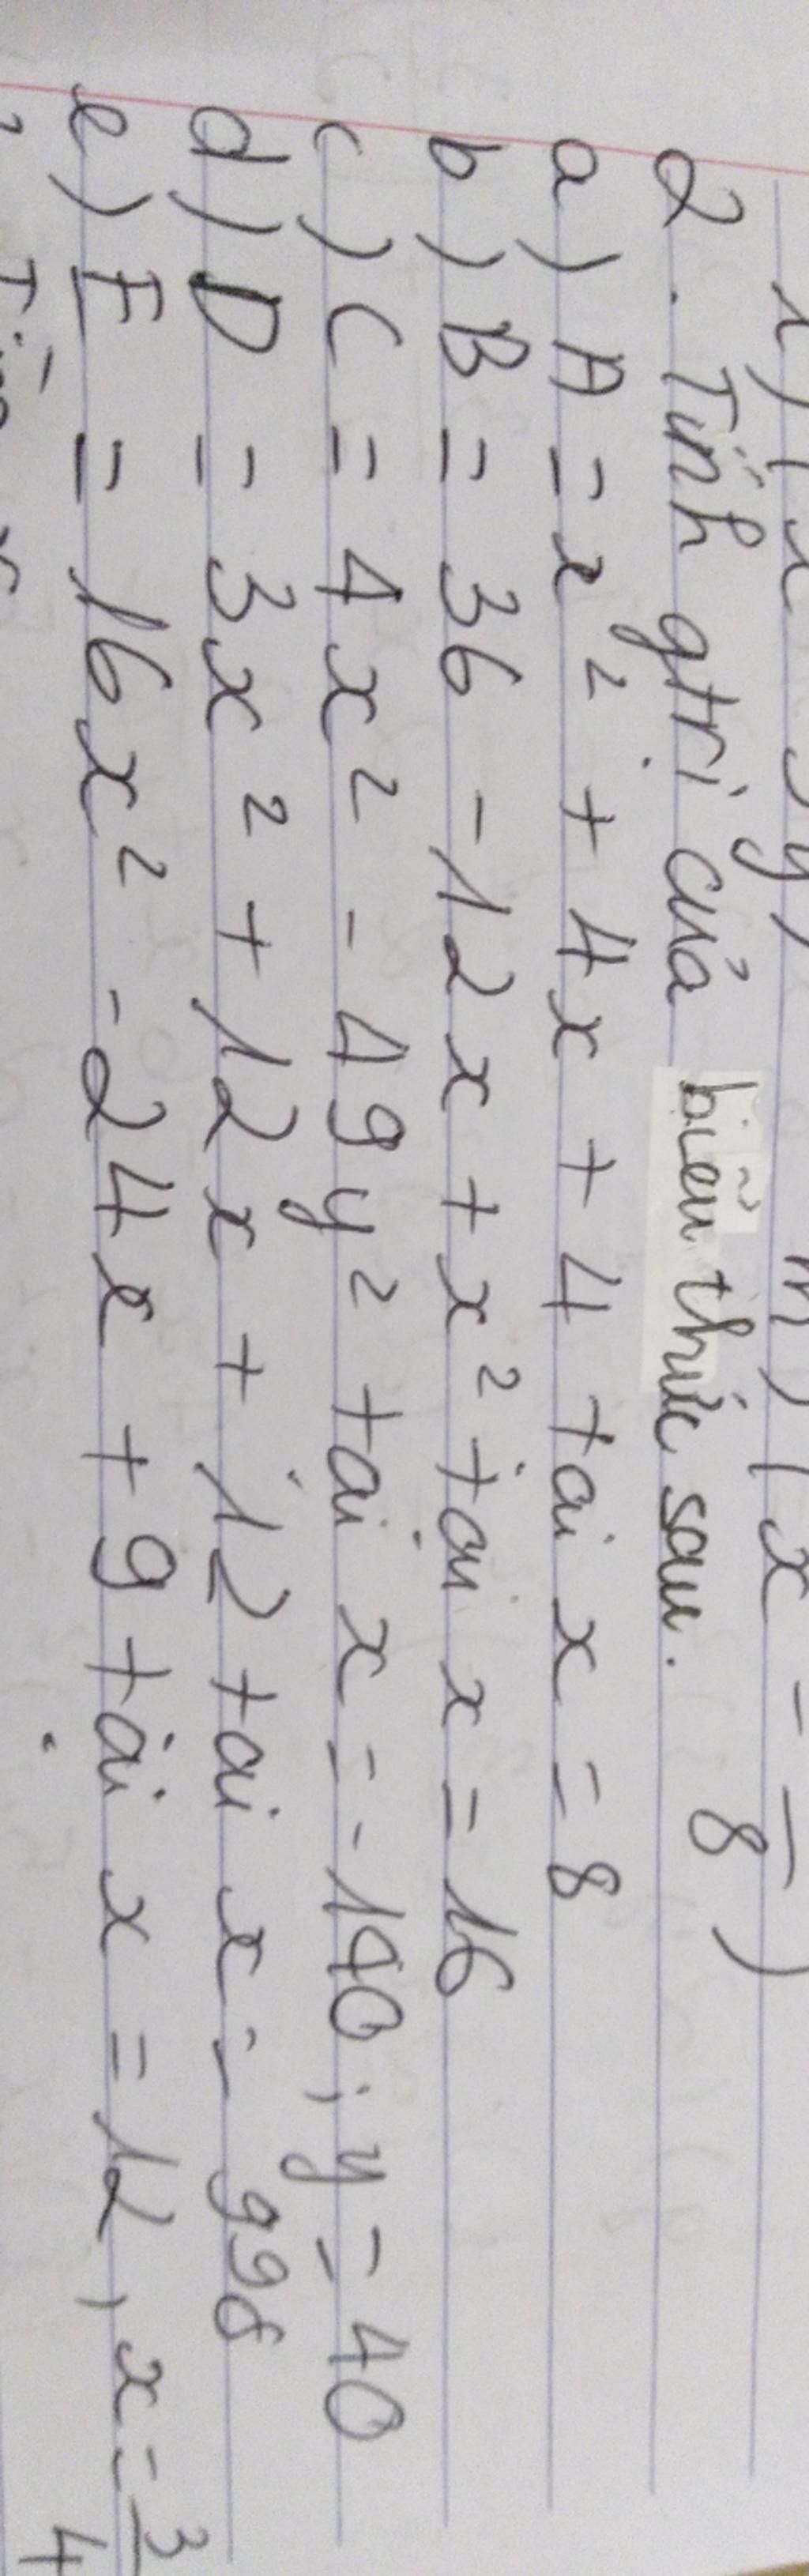 x) (x y) m) (x - 8)
2. Tính gtrị của biểu thức sau.
a) A = x² + 4x + 4 tại x = 8
b) B = 36 - 12x + x² tại x = 16
c) C = 4x² - 49y² tại x = -140 ; y = 40
d) D = 3x² + 12x + 12 tại x = 998
e) F = 16x² - 24x + 9 tại x = 12, x = 3/4